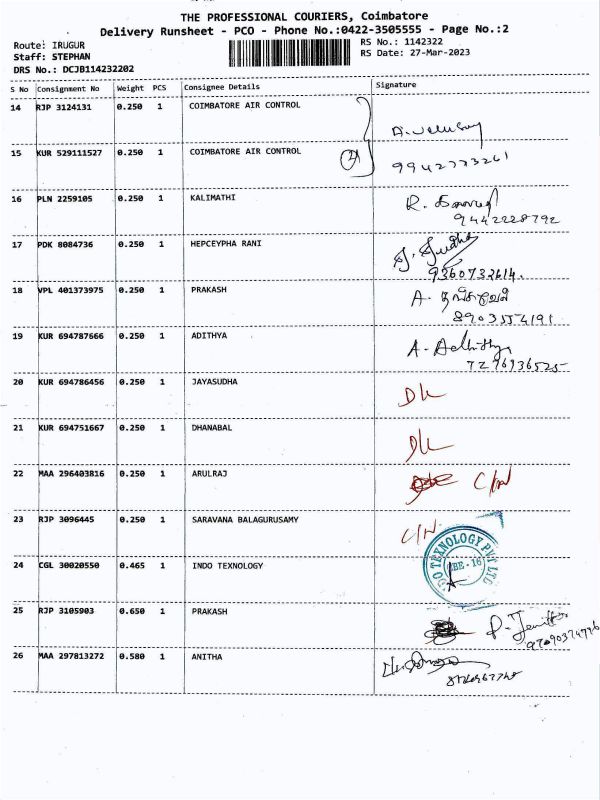 THE PROFESSIONAL COURIERS, Coimbatore
Delivery Runsheet - PCO - Phone No.:0422-3505555 - Page No.:2
Route: IRUGUR
RS No.: 1142322
Staff: STEPHAN
RS Date: 27-Mar-2023
DRS No.: DCJB114232202
S No Consignment No Weight PCS Consignee Details Signature
14 RJP 3124131 0.250 1 COIMBATORE AIR CONTROL
15 KUR 529111527 0.250 1 COIMBATORE AIR CONTROL
16 PLN 2259105 0.250 1 KALIMATHI R.
9442228792
17 PDK 8084736 0.250 1 HEPCEYPHA RANI
9360732614.
18 VPL 401373975 0.250 1 PRAKASH A.
8903554191
19 KUR 694787666 0.250 1 ADITHYA A. Adhithya
20 KUR 694786456 0.250 1 JAYASUDHA DL
21 KUR 694751667 0.250 1 DHANABAL DL
22 MAA 296403816 0.250 1 ARULRAJ C/N
23 RJP 3096445 0.250 1 SARAVANA BALAGURUSAMY C/N
24 CGL 30020550 0.465 1 INDO TEXNOLOGY DO TEXNOLOGY PVT LTD
25 RJP 3105903 0.650 1 PRAKASH
26 MAA 297813272 0.580 1 ANITHA